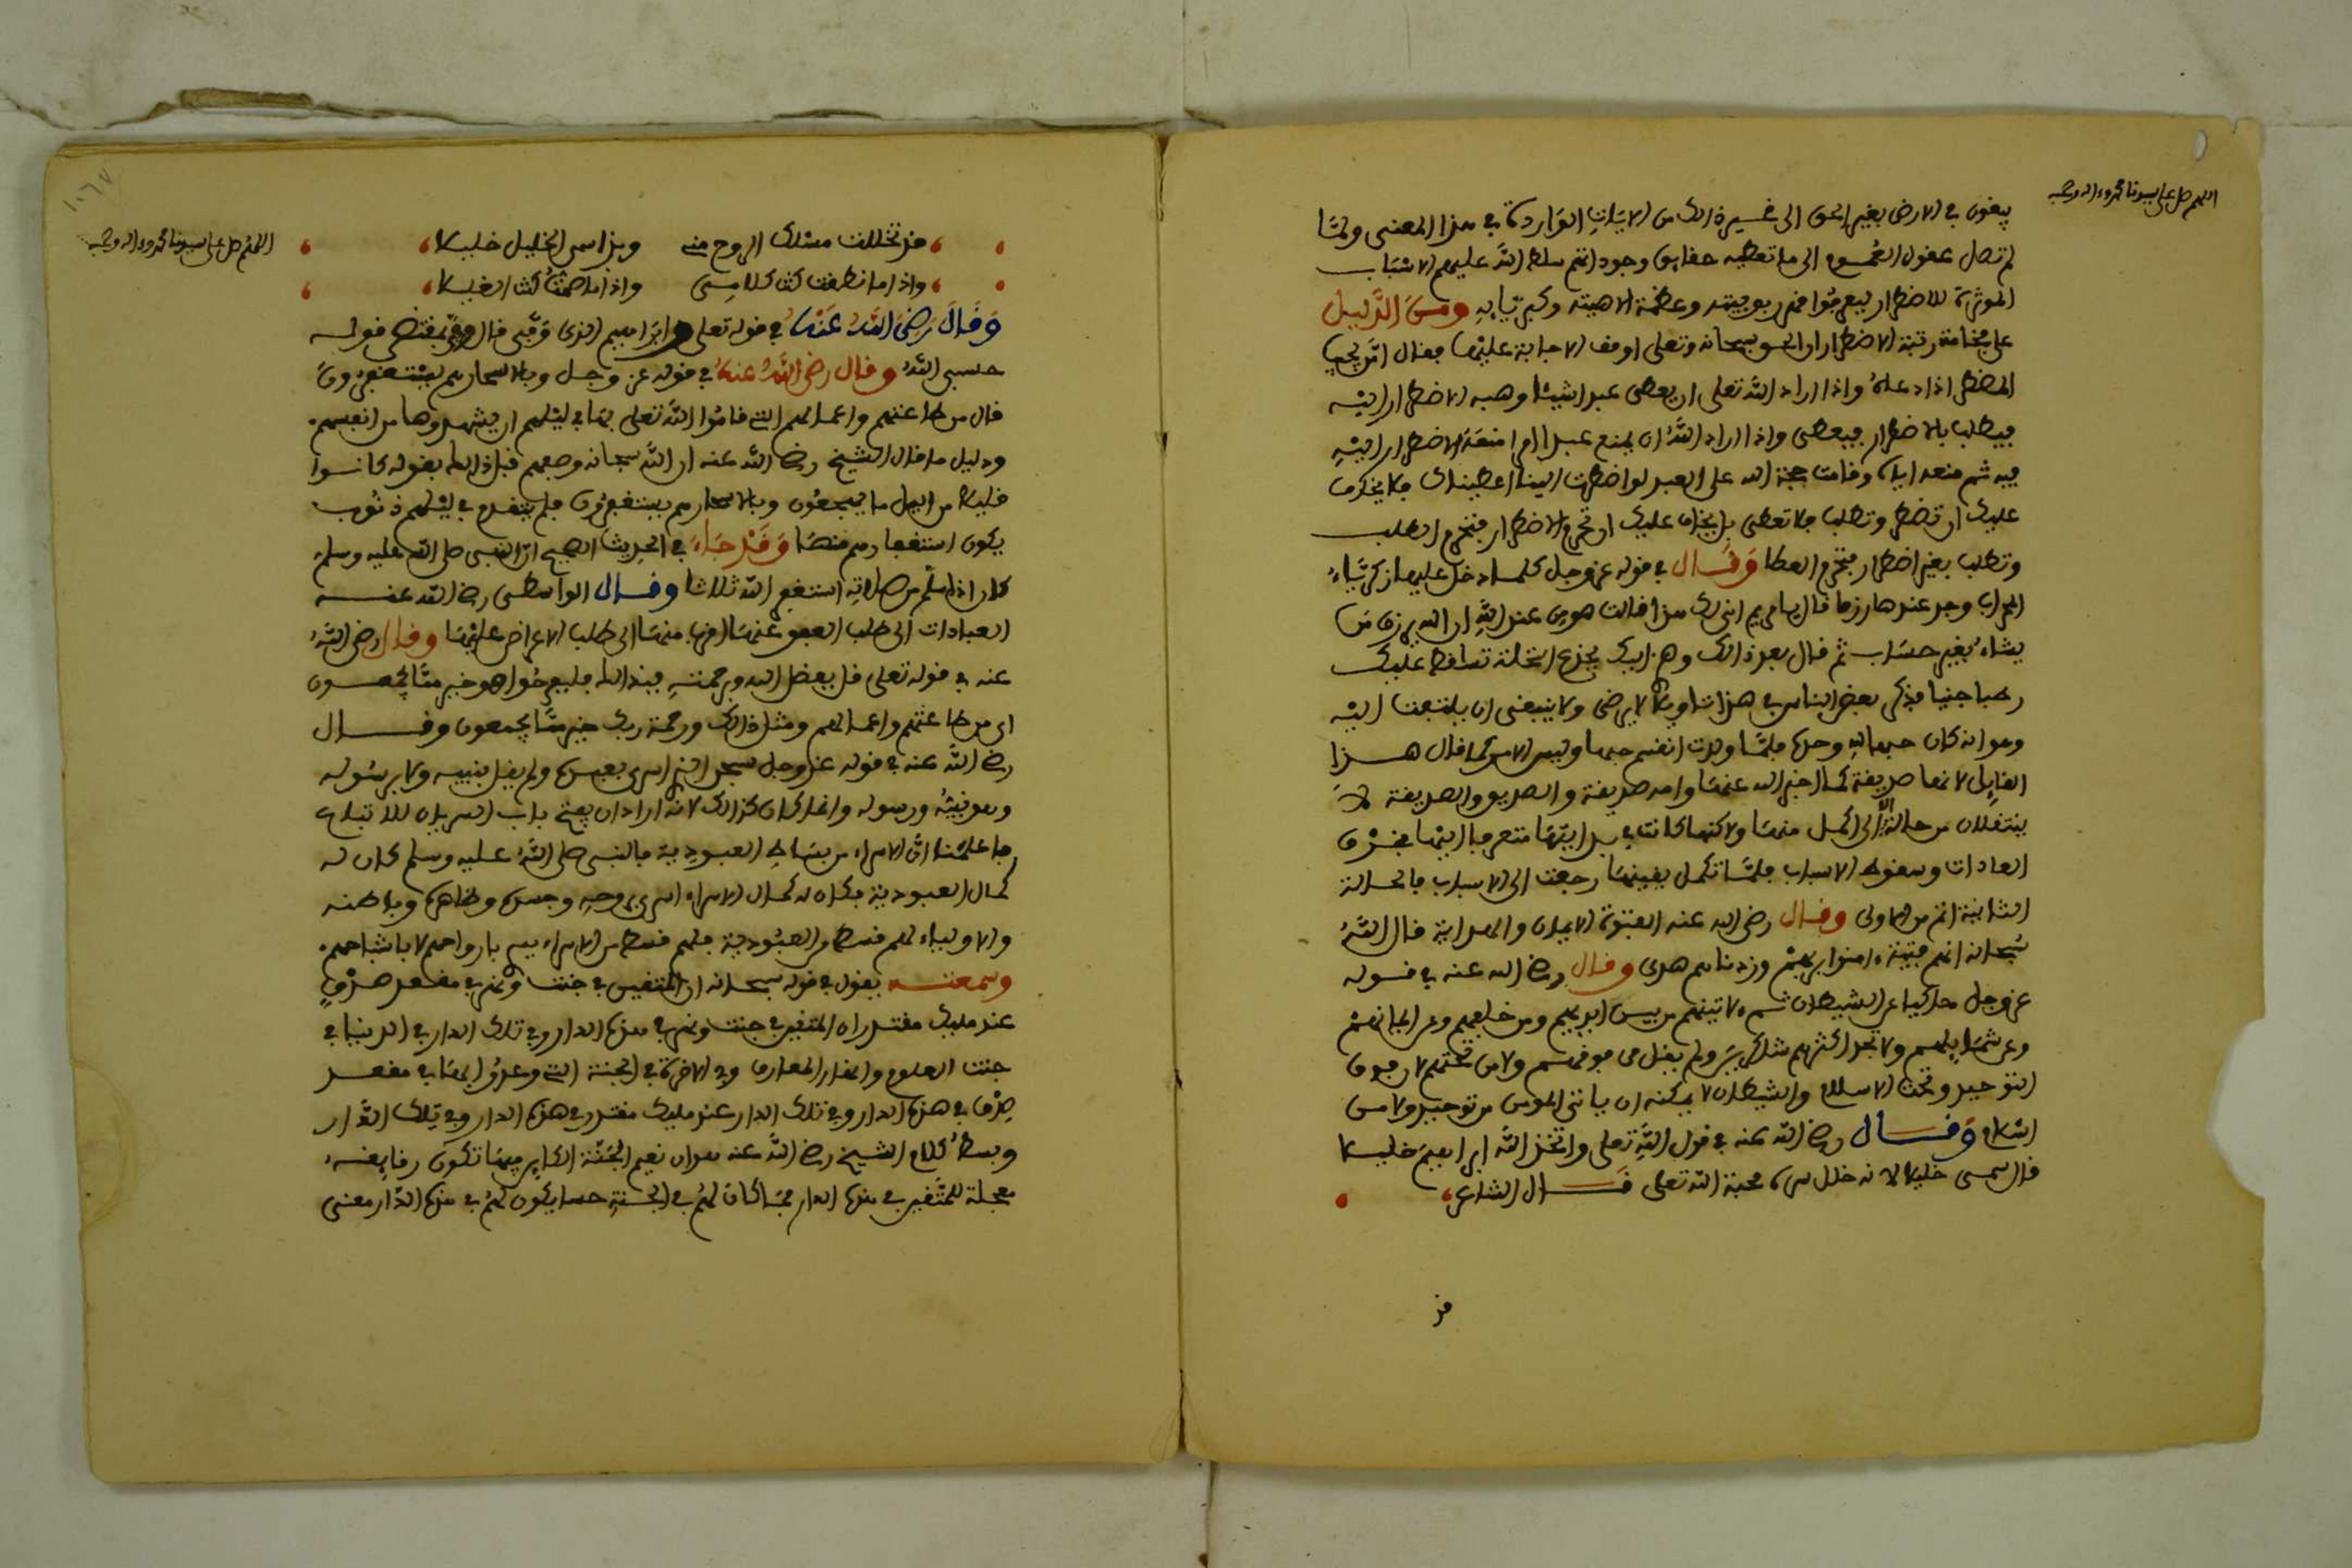 اللهم صل على سيدنا محمد وءاله وصحبه
يبغون في الارض بغير الحق الى غير ذالك من الايات الواردة في هذا المعنى ولما
لم تصل عقول العموم الى ما تعطيه حقايق وجود اتهم سلط الله عليهم الاسباب
الموثرة للاضطرار ليعرفوا قهر ربوبيته وعظمة الاهيته وكبريايه ومن الدليل
على فخامة رتبة الاضطرار ان الحق سبحانه وتعلى اوقف الاجابة عليها فقال امن يجيب
المضطر اذا دعاه واذا اراد الله تعلى ان يعطي عبدا شيئا وهبه الاضطرار اليه
فيطلب بالاضطرار فيعطى واذا اراد الله ان يمنع عبدا امرا منعه الاضطرار اليه
فيه ثم منعه اياه وقامت حجة الله على العبد لو اضطررت الينا اعطيناك فلا يخاف
عليك ان تضطر وتطلب فلا تعطى بل يخاف عليك ان تحرم الاضطرار فتحرم الطلب
وتطلب بغير اضطرار فتحرم العطا وقال في قوله عز وجل كلما دخل عليها زكرياء
المحراب وجد عندها رزقا قال يا مريم انى لك هذا قالت هو من عند الله ان الله يرزق من
يشاء بغير حساب ثم قال بعد ذالك وهزي اليك بجذع النخلة تساقط عليك
رطبا جنيا فذكر بعض الناس في هذا تاويلا لا يرضى ولا ينبغي ان يلتفت اليه
وهو انه كان حبها لله وحده فلما ولدت انقسم حبها وليس الامر كما قال هذا
القايل لانها صديقة كما اخبر الله عنها وامه صديقة والصديق والصديقة لا
ينتقلان من حالة الا الى اكمل منها ولاكنها كانت في بدايتها متعرفا اليها بخرق
العادات وسقوط الاسباب فلما تكمل يقينها رجعت الى الاسباب فالحالة
الثانية اتم من الاولى وقال رضي الله عنه الفتوة الايمان والهداية قال الله
سبحانه انهم فتية ءامنوا بربهم وزدناهم هدى وقال رضي الله عنه في قوله
عز وجل حاكيا عن الشيطان ثم ءلاتينهم من بين ايديهم ومن خلفهم وعن ايمانهم
وعن شمايلهم ولا تجد اكثرهم شاكرين ولم يقل من فوقهم ولا من تحتهم لان فوق
التوحيد وتحت الاسلام والشيطان لا يمكنه ان ياتي المومن من توحيد ولا من
اسلام وقال رضي الله عنه في قول الله تعلى واتخذ الله ابراهيم خليلا
قال سمي خليلا لانه خالل سره محبة الله تعلى قال الشاعر
قد
اللهم صل على سيدنا محمد وءاله وصحبه
قد تخللت مسلك الروح مني وبذا سمي الخليل خليلا
واذا ما نطقت كنت كلامي واذا ما صمت كنت الغليلا
وقال رضي الله عنه في قوله تعلى وابراهيم الذي وفى قال وفى بمقتضى قوله
حسبي الله وقال رضي الله عنه في قوله عز وجل وبالاسحار هم يستغفرون
قال من طاعتهم واعمالهم التي قاموا لله تعلى بها في ليلهم ان يشهدوها من انفسهم
ودليل ما قال الشيخ رضي الله عنه ان الله سبحانه وصفهم قبل ذالك بقوله كانوا
قليلا من اليل ما يهجعون وبالاسحار هم يستغفرون فلم يتقدم في ليلهم ذنوب
يكون استغفارهم منها وقد جاء في الحديث الصحيح ان النبي صلى الله عليه وسلم
كان اذا سلم من صلاته استغفر الله ثلاثا وقال الواسطي رضي الله عنه
العبادات الى طلب العفو عنها اقرب منها الى طلب الاعواض عليها وقال رضي الله
عنه في قوله تعلى قل بفضل الله وبرحمته فبذالك فليفرحوا هو خير مما يجمعون
اي من طاعتهم واعمالهم ومثل ذالك ورحمة ربك خير مما يجمعون وقال
رضي الله عنه في قوله عز وجل سبحن الذي اسرى بعبده ولم يقل بنبيه ولا برسوله
وهو نبيه ورسوله وانما كان كذالك لانه اراد ان يفتح باب السريان للاتباع
فاعلمنا ان الاسراء من بساط العبودية فالنبي صلى الله عليه وسلم كان له
كمال العبودية فكان له كمال الاسراء اسري بروحه وجسده وظاهره وباطنه
والاولياء لهم قسط من العبودية فلهم قسط من الاسراء يسر بارواحهم لا باشباحهم
وسمعته يقول في قوله سبحانه ان المتقين في جنت ونهر في مقعد صدق
عند مليك مقتدر ان المتقين في جنت ونهر في هذه الدار وفي تلك الدار في الدنيا في
جنت العلوم وانهار المعارف وفي الاخرة في الجنة التي وعدوا بها في مقعد
صدق في هذه الدار وفي تلك الدار عند مليك مقتدر في هذه الدار وفي تلك الدار
وبسط كلام الشيخ رضي الله عنه هو ان نعيم الجنة الكاين فيها تكون رقايقه
معجلة للمتقين في هذه الدار فما كان لهم في الجنة حسا يكون لهم في هذه الدار معنى